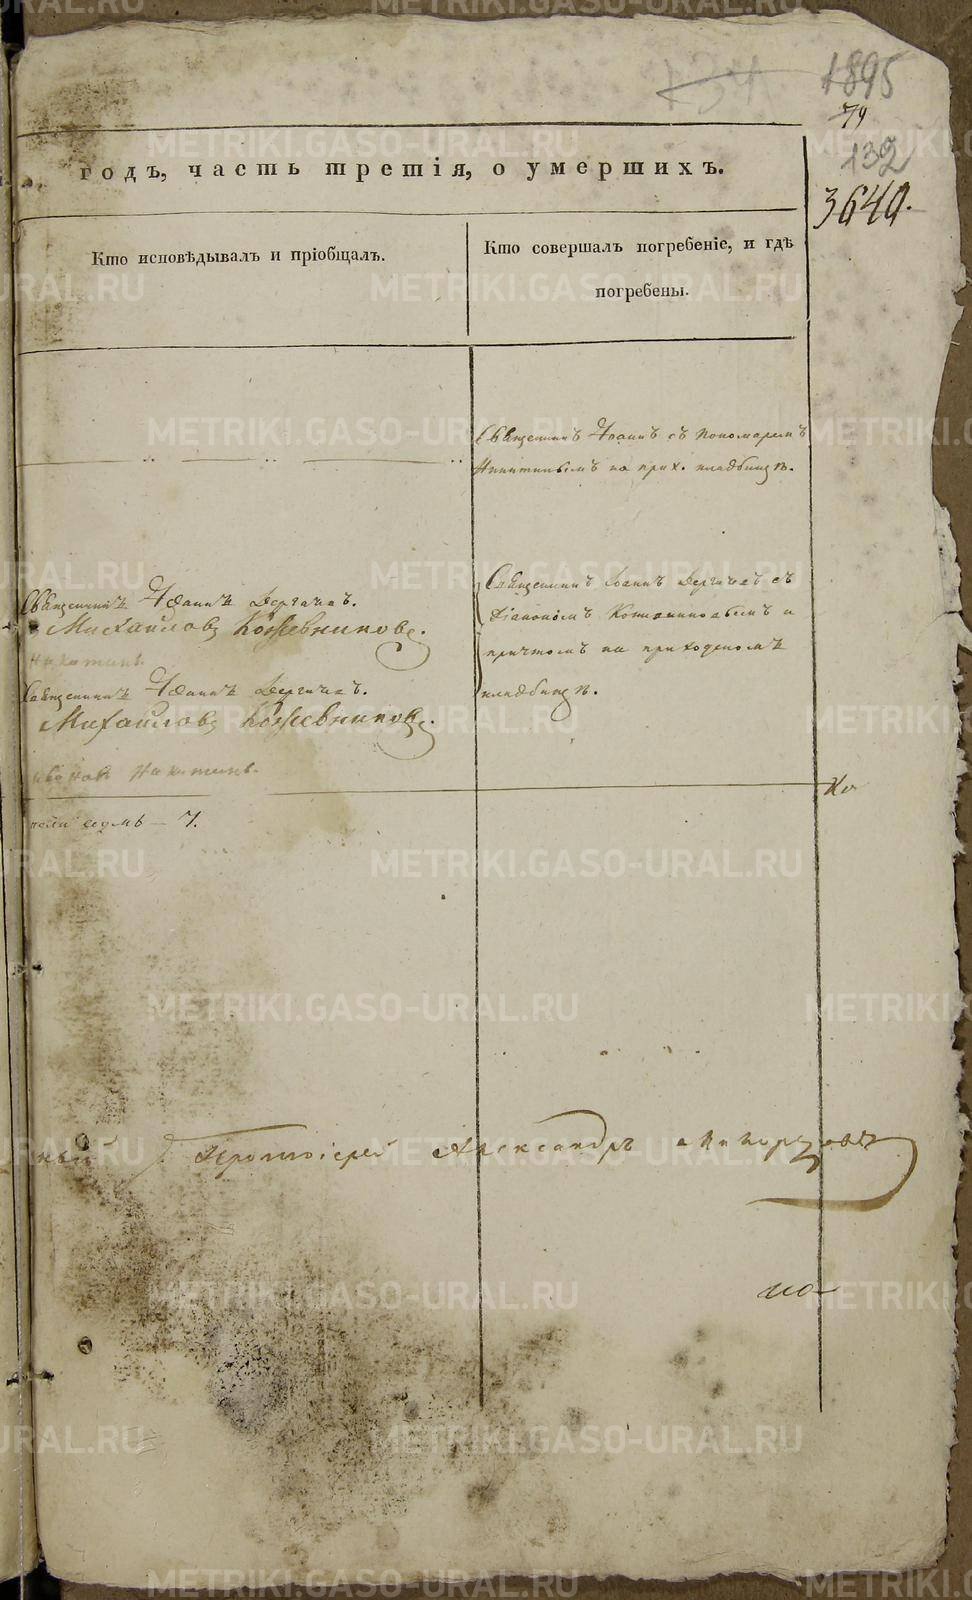 1895
79
132
3640.
годъ, часть третія, о умершихъ.
Кто исповѣдывалъ и пріобщалъ.
Кто совершалъ погребеніе, и гдѣ
погребены.
Священникъ Іоаннъ съ пономаремъ
Никитинымъ на прих. кладбищѣ.
Священникъ Іоаннъ Дергачевъ.
Михайловъ Кожевниковъ.
Никитинъ
Священникъ Іоаннъ Дергачевъ.
Михайловъ Кожевниковъ.
Никитинъ.
Священникъ Іоаннъ Дергачевъ съ
Діакономъ и
причтомъ на приходскомъ
кладбищѣ.
седмь — 7.
Протоіерей Александръ
по
METRIKI.GASO-URAL.RU